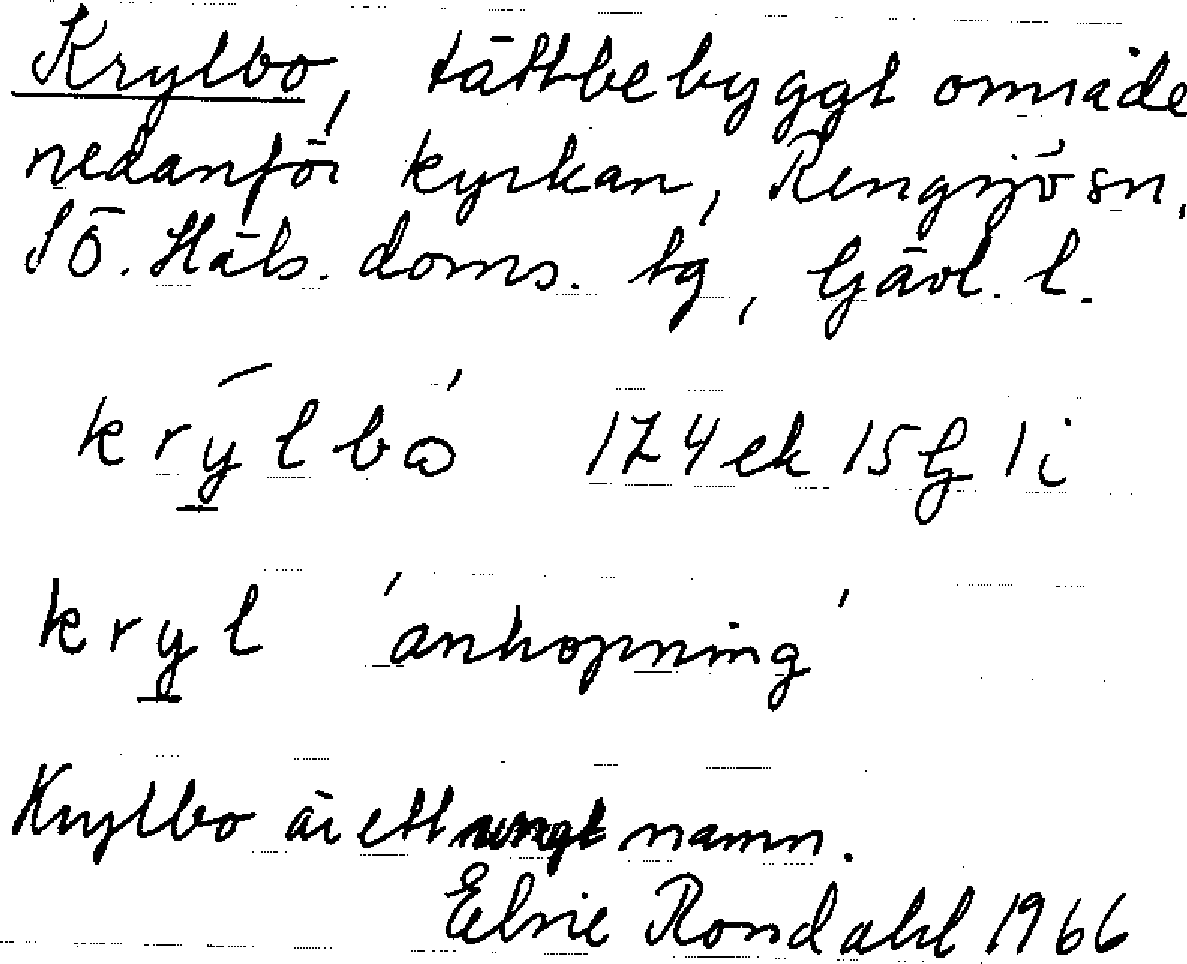 Krylbo, tättbebyggt område
nedanför kyrkan, Rengsjö sn,
SÖ. Häls. doms. tg, Gävl. l.
krylbo 174ek 15 G 1i
kryl 'anhopning'
Krylbo är ett ungt namn.
Elsie Rondahl 1966